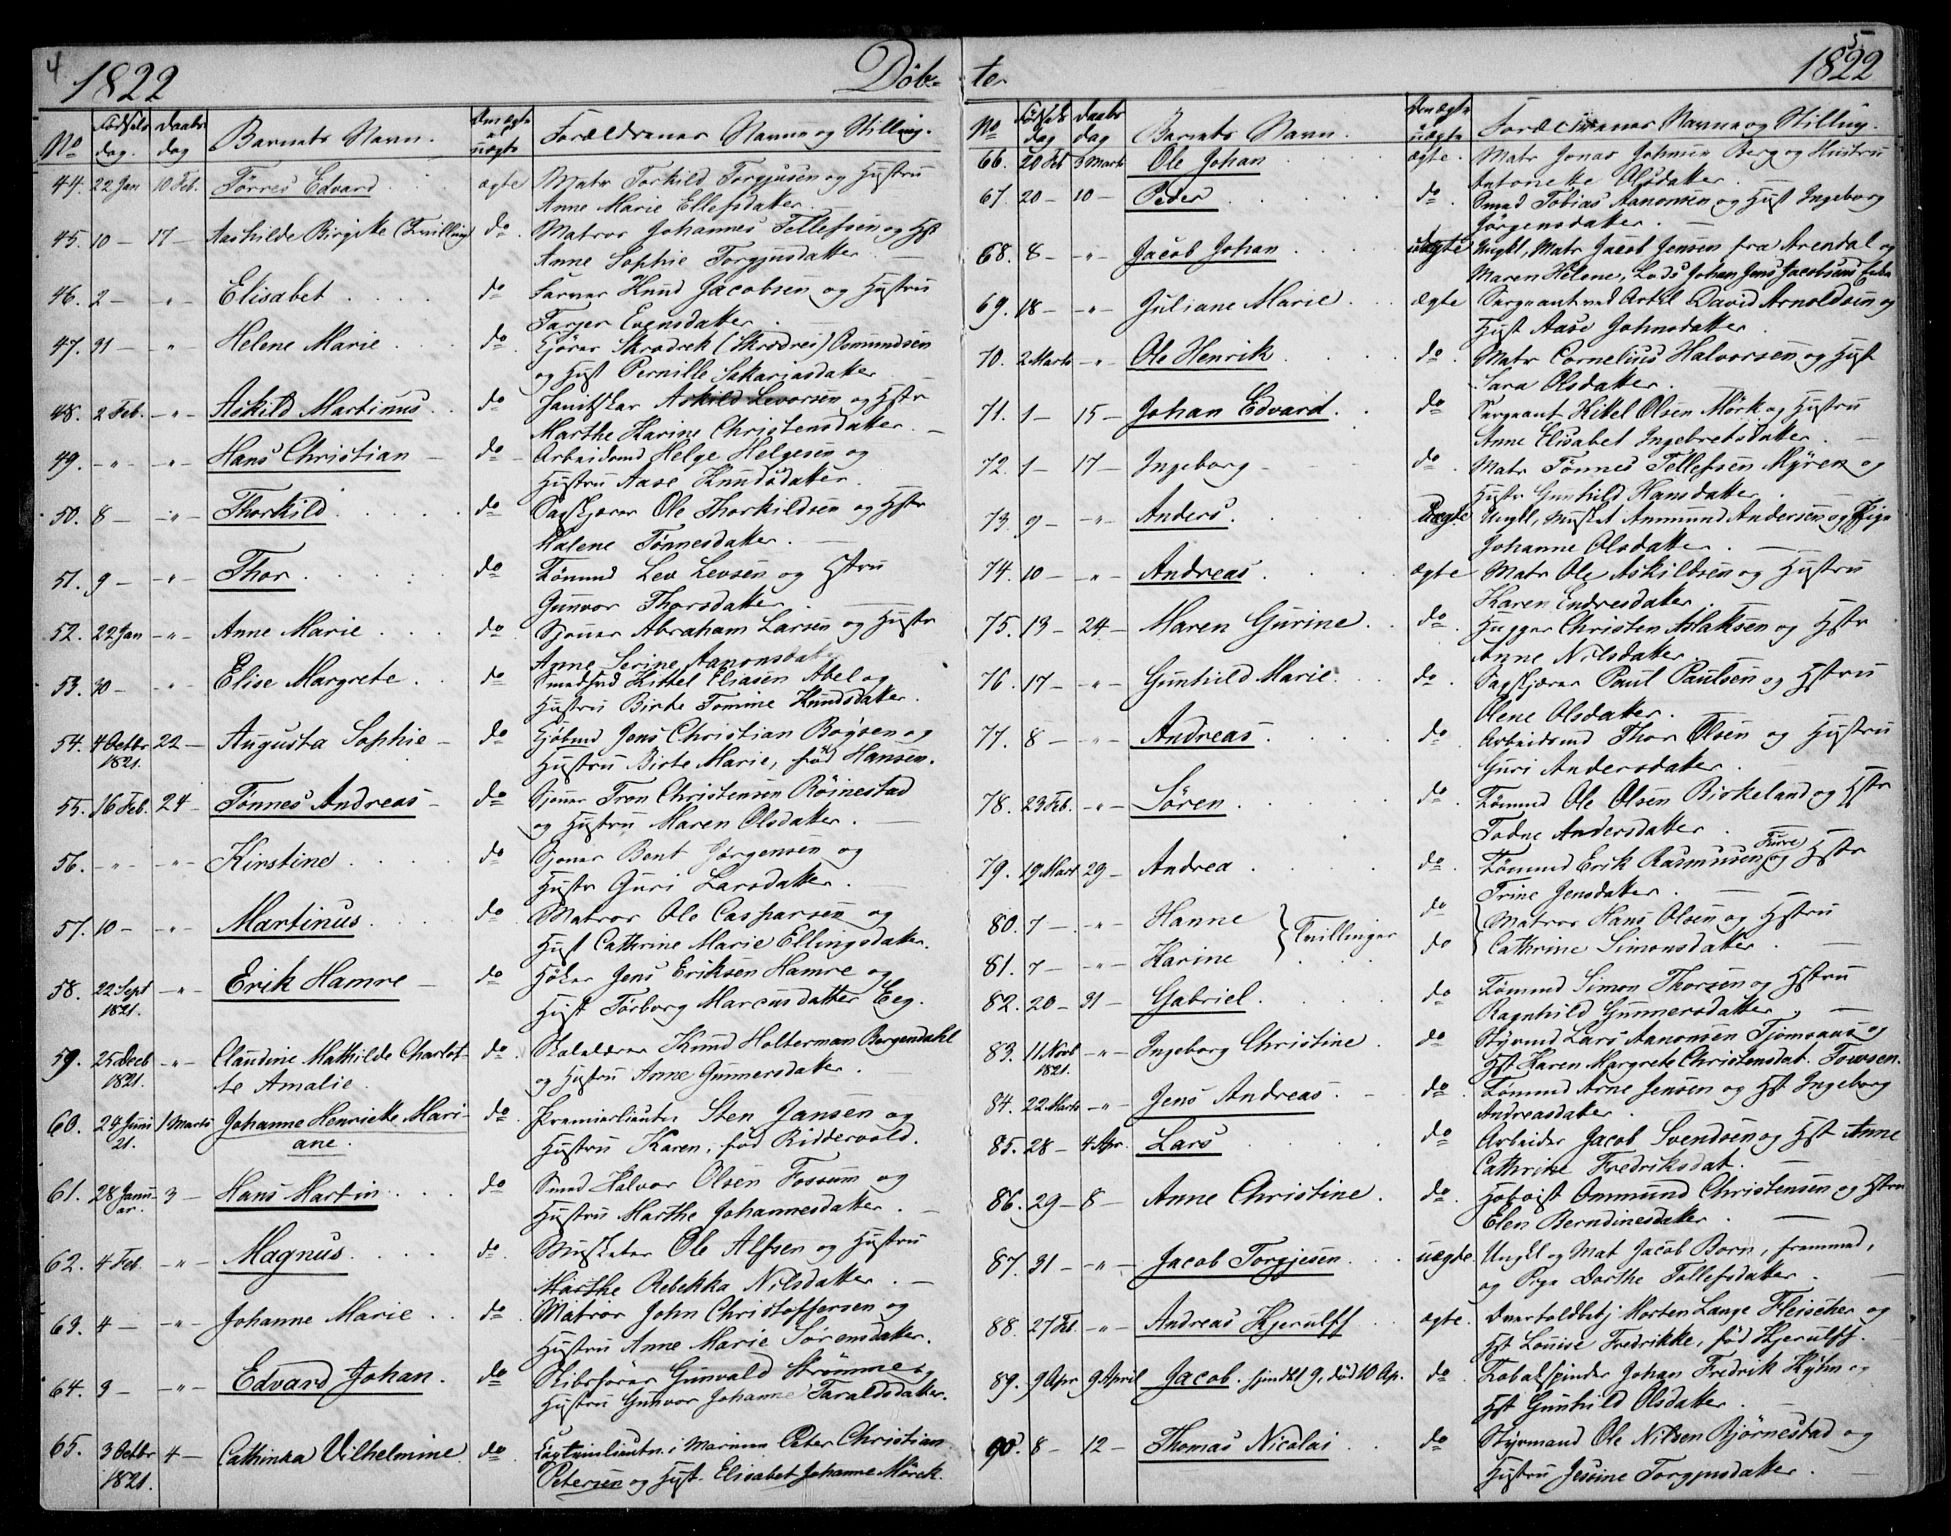 4
1822
Døb-
No Fødsels dag. Daabs dag Barnets Navn. Om ægte el uægte Forældrenes Navne og Stilling.
44. 22 Jan 10 Feb. Tørres Edvard ægte Matr Torkild Torgjusen og Hustru
Anne Marie Ellefsdatter. —
45. 10 — 17 — Aashilde Birgitte (Tvilling) do Matros Johannes Tellefsen og Hst
Anne Sophie Torgjusdatter —
46. 2 — " Elisabet do Knud Jacobsen og Hustru
Tarjer Evensdatter.
47. 31 — " Helene Marie do. Skrædrek (Skrædrei) Osmundsen
og Hust Pernille Sakariasdatter
48. 2 Feb. — " — Askild Martinus do Askild Levorsen og Hstr
Marthe Karine Christensdatter. —
49. — " — — " — Hans Christian — do. Arbeidsmd Helge Helgesen og
Hustru Aase Knudsdatter.
50. 8 — — " — Thorkild do Sagskjærer Ole Thorkildsen og Hstr
Malene Tønnesdatter. —
51. 9 — — " — Thor do Tømmd Lev Levsen og Hstru
Gunvor Thorsdatter. —
52. 22 Jan — " — Anne Marie do. Sjouer Abraham Larsen og Hustr
Anne Serine Aanonsdatter
53. 30 — — " — Elise Margrete do Kittel Eliasen Abel og
Hustru Birte Tomine Knudsdatter.
54. 4 Octbr 1821. 22 — Augusta Sophie — do Kjøbmd Jens Christian Bogsen og
Hustru Birte Marie, fød Hansen.
55. 16 Feb. 24 — Tønnes Andreas — do. Sjouer Tron Christensen Røinestad
og Hustru Maren Olsdatter. —
56. — " — — " — Kirstine do Sjouer Bent Jørgensen og
Hustr Guri Larsdatter. —
57. 10 — — " — Martinus do Matros Ole Caspersen og
Hust Cathrine Marie Ellingsdatter.
58. 22 Sept 1821. — " — Erik Hamre — do Høker Jens Eriksen Hamre og
Hust Tørborg Marcusdatter Eeg.
59. 25 Decb 1821. — " — Claudine Mathilde Charlot- do. Skolelærer Knud Holterman Borgendahl
te Amalie. og Hustru Anne Gunnersdatter. —
60. 24 Juni 21. 1 Marts Johanne Henriette Mari- do. Premierlieutn. Sten Jansen og
ane. Hustru Karen, fød Riddervold.
61. 28 Janu- ar. 3 — Hans Martin do Smed Halvor Olsen Fossum og
Hustru Marthe Johannesdatter. —
62. 4 Feb. — " — Magnus do. Musketer Ole Alfsen og Hustru
Marthe Rebekka Nilsdatter. —
63. 4 — — " — Johanne Marie do Matros John Christoffersen og
Hustru Anne Marie Sørensdatter.
64. 3 — — " — Edvard Johan. do Skibsfører Gunvald Strømme og
Hustru Gunvor Johanne Taraldsdatter.
65. 3 Octbr 1821. 4 — Cathinka Vilhelmine do. i Marinen Peter Christian
Petersen og Hust. Elisabet Johanne Mørch.
5
te.
1822
No Fødsels dag Daabs dag Barnets Navn. Om ægte uægte Forældrenes Navne og Stilling.
66. 20 Feb 3 Marts Ole Johan ægte. Matr Jonas Johnsen Berg og Hustru
Antonette Olsdatter. —
67. 20 — 10 — Peder do Smed Tobias Aanonsen og Hust Ingeborg
Jørgensdatter. —
68. 8 — — " — Jacob Johan uægte Ungkl, Matr Jacob Jensen fra Arendal og
Maren Helene, Lods Johan Jens Jacobsens
69. 18 — — " — Juliane Marie ægte Sergeant ved Artil David Arnoldsen og
Hust Aase Johnsdatter.
70. 2 Marts — " — Ole Henrik do. Matr Cornelius Halvorsen og Hust
Sara Olsdatter.
71. 1 — 15 — Johan Edvard. do Sergeant Kittel Olsen Mørk og Hustru
Anne Elisabet Ingebretsdatter. —
72. 1 — 17 — Ingeborg do. Matr Tønnes Tellefsen Myren og
Hustr Gunhild Hansdatter.
73 9 — — " — Anders. Uægte Ungkl, Musket Anmund Andersen og Pige
Johanne Olsdatter. —
74. 10 — — " — Andreas ægte Matr Ole Askildsen og Hustru
Karen Endresdatter.
75. 13 — 24 — Maren Gurine do. Hugger Christen Aslaksen og Hstr
Anne Nilsdatter.
76. 17 — — " — Gunhild Marie. do. Sagskjærer Paul Paulsen og Hstru
Olene Olsdatter.
77. 8 — — " — Andreas do. Arbeidsmd Thor Olsen og Hustru
Guri Andersdatter. —
78. 23 Feb. — " — Søren do. Tømmd Ole Olsen Birkeland og Hstr
Todne Andersdatter. —
79. 19 Mart 29 — Andrea do. Tømmd Erik Rasmussen Furre og Hstr
Trine Jensdatter. —
80. 7 — — " — Hanne } Tvillinger do { Matros Hans Olsen og Hstru
81. 7 — — " — Karine do Cathrine Simonsdatter. —
82. 20 — 31 — Gabriel. do. Tømmd Simon Thorsen og Hstru
Ragnhild Gunnersdatter. —
83. 11 Novb 1821. — " — Ingeborg Christine do Styrmd Lars Aanonsen Tjomsaas og
Hst Karen Margrete Christensdat. Towsen.
84. 22 Marts — " — Jens Andreas. do. Tømmd Arne Jensen og Hst Ingeborg
Andreasdatter. —
85. 28 — 4 Apr. Lars do. Arbeider Jacob Svendsen og Hst Anne
Cathrine Fredriksdat. —
86. 29 — 8 — Anne Christine. do. Hoboist Ommund Christensen og Hstru
Elen Berndinesdatter. —
87. 31 — — " — Jacob Torgjesen uægte. Ungkl og Mat Jacob Born, fremmed,
og Pige Dorthe Tollefsdatter. —
88. 27 Feb. — " — Andreas Kjerulff ægte. Morten Lange Fleischer og
Hst Louise Fredrikke, fød Kjerulff.
89. 9 Apr 9 April Jacob. hjemdøbt 9, død 10 Ap. do Tobakspinder Johan Fredrik Kyhn og
Hst Gunhild Olsdatter. —
90. 8 — 12 — Thomas Nicolai do Styrmand Ole Nilsen Bjørnestad og
Hustru Jessine Torgjusdatter. —